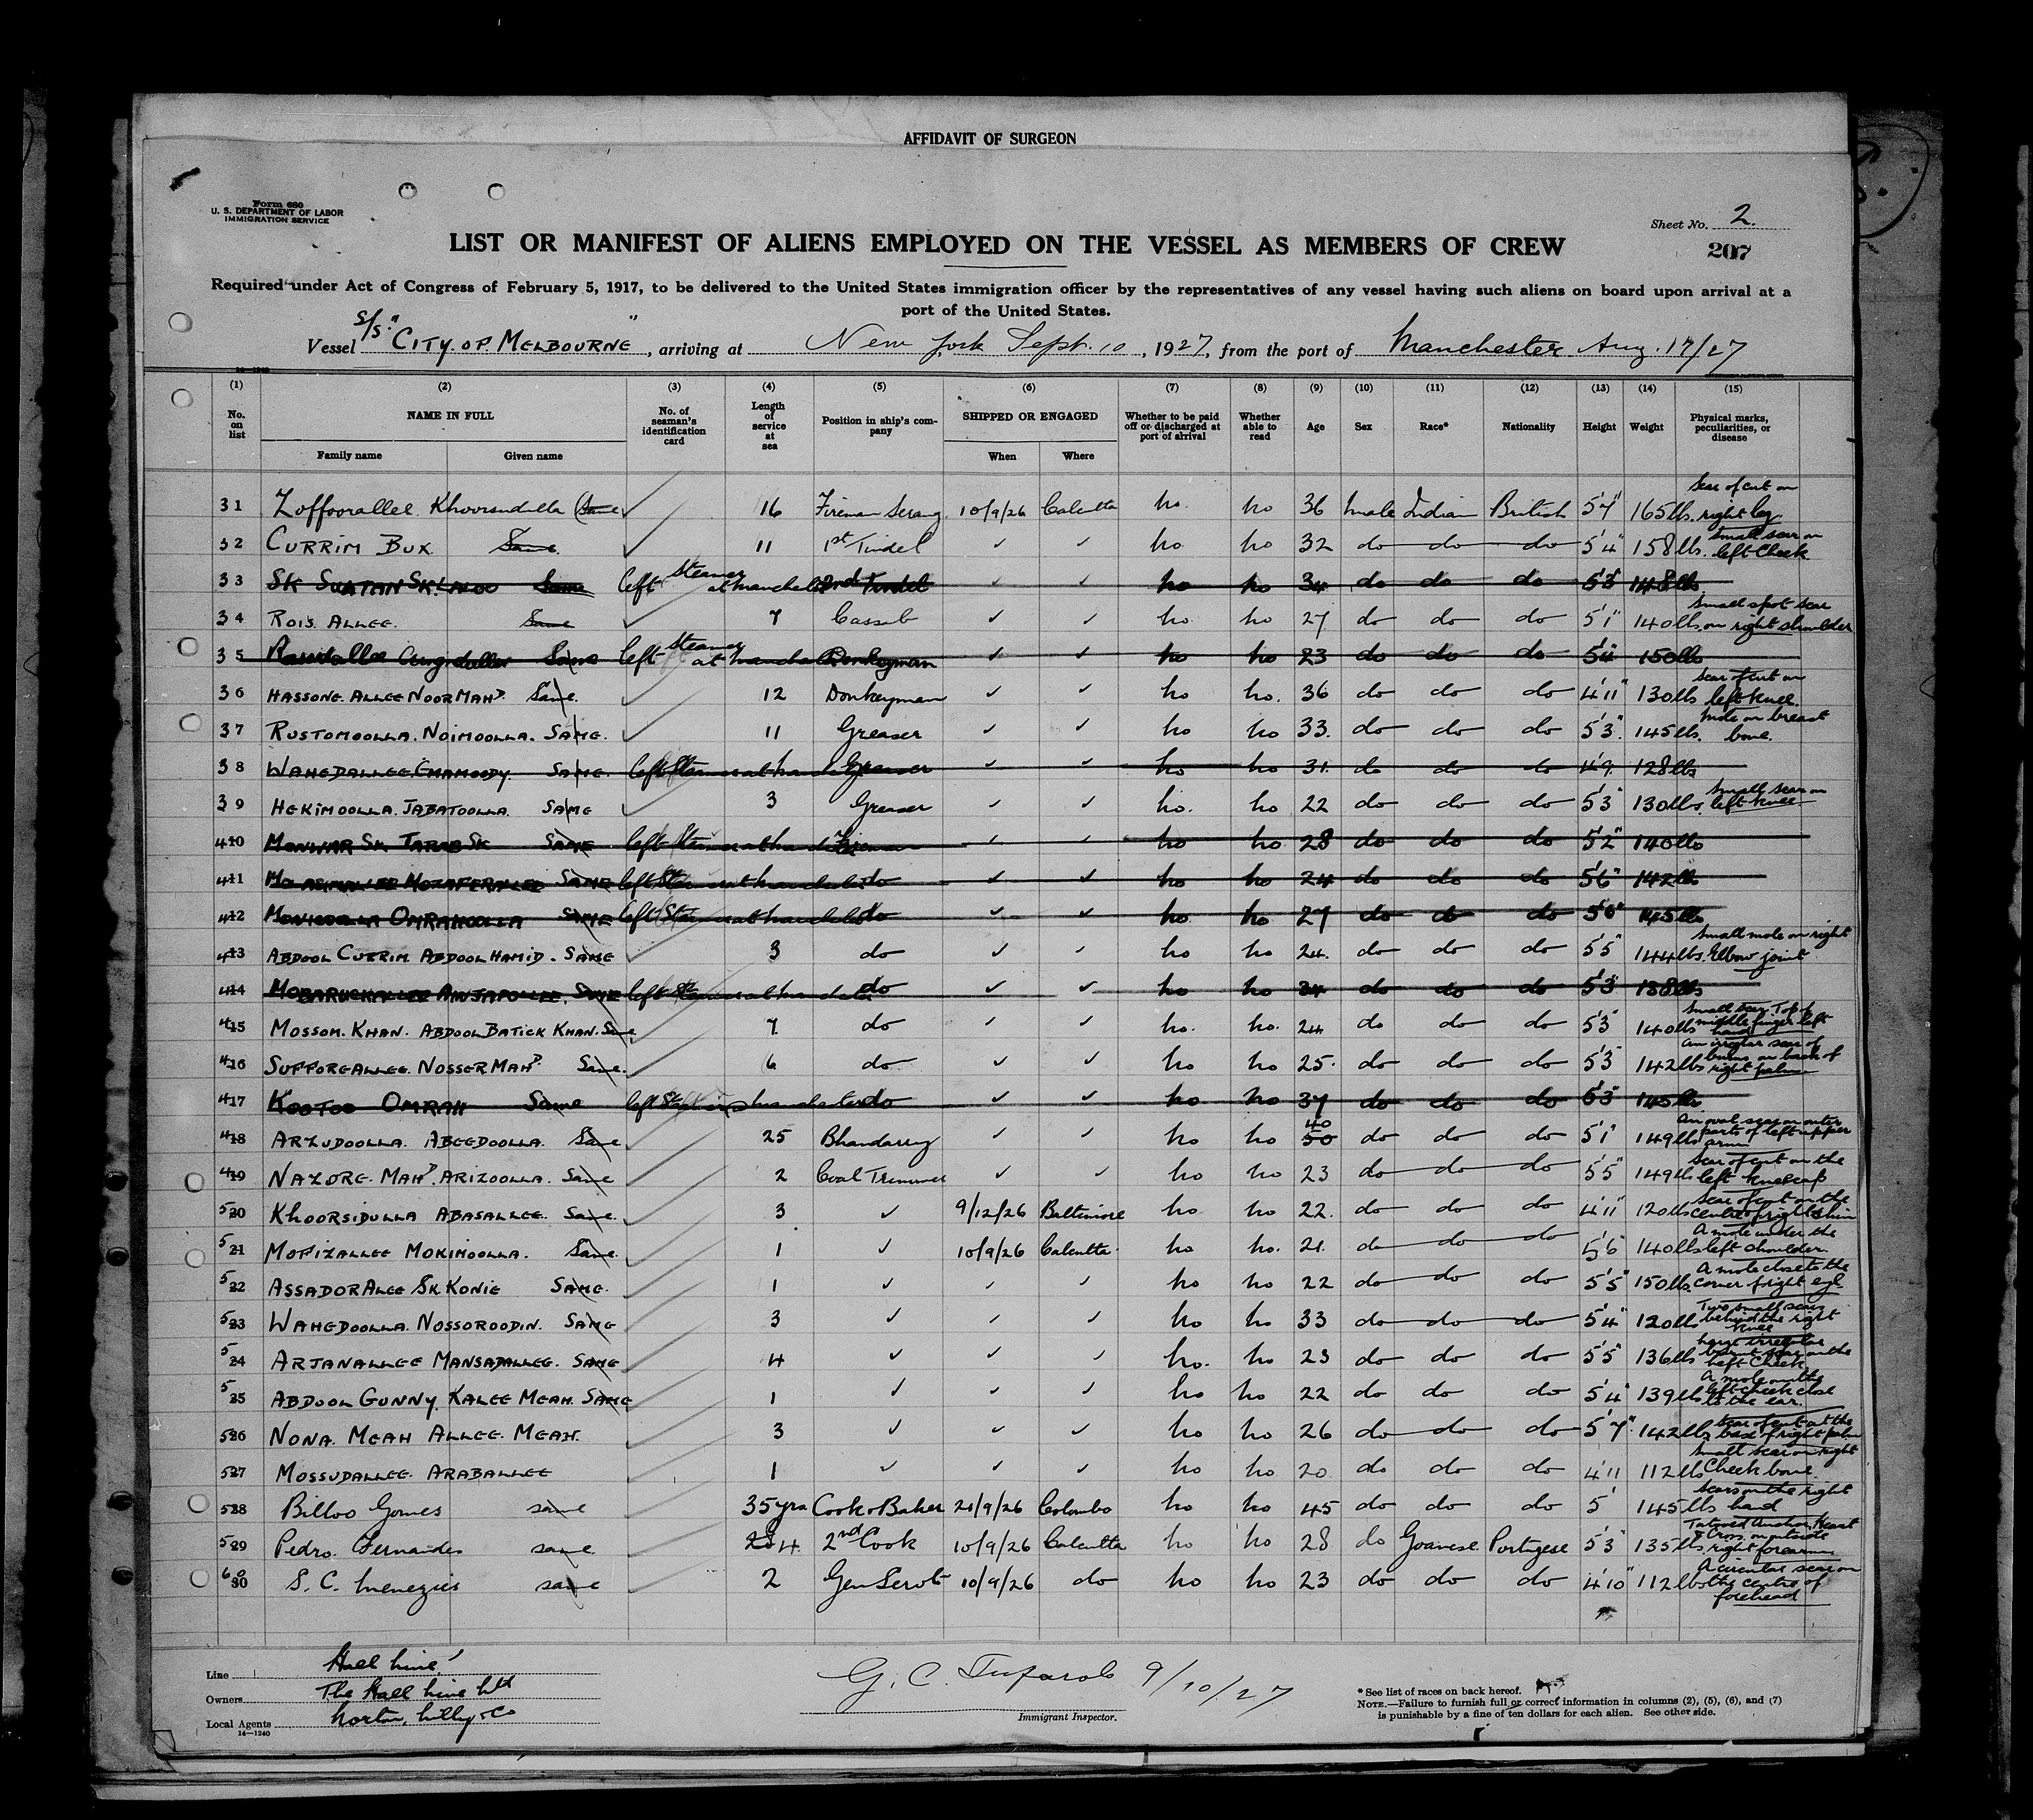 AFFIDAVIT OF SURGEON
Form 680
U. S. DEPARTMENT OF LABOR
IMMIGRATION SERVICE
Sheet No. 2.
207
LIST OR MANIFEST OF ALIENS EMPLOYED ON THE VESSEL AS MEMBERS OF CREW
Required under Act of Congress of February 5, 1917, to be delivered to the United States immigration officer by the representatives of any vessel having such aliens on board upon arrival at a
port of the United States.
Vessel S/S. "CITY OF MELBOURNE", arriving at New York Sept. 10, 1927, from the port of Manchester Aug. 17/27
14-1240
(1) (2) (3) (4) (5) (6) (7) (8) (9) (10) (11) (12) (13) (14) (15)
No. on list NAME IN FULL Family name Given name No. of seaman's identification card Length of service at sea Position in ship's company SHIPPED OR ENGAGED When Where Whether to be paid off or discharged at port of arrival Whether able to read Age Sex Race* Nationality Height Weight Physical marks, peculiarities, or disease
31 Zoffoorallee Khoorsudulla (Same 16 Fireman Serang 10/9/26 Calcutta no. no 36 male Indian British 5'7" 165lbs. Scar of cut on right leg.
32 CURRIM BUX. Same. 11 1st Tindel ✓ ✓ no no 32 do do do 5'4" 158lbs. Small scar on left Cheek
33 Same left steamer at Manchester 2nd Tindel ✓ ✓ no no 34 do do do 5'3" 148lbs
34 ROIS ALLEE. Same 7 Cassab ✓ ✓ no 27 do do do 5'1" 140lbs. Small spot scar on right shoulder
35 Same left steamer at Manchester Donkeyman ✓ ✓ no no 23 do do do 5'4" 150lbs
36 HASSONE. ALLEE NOOR MAHD. Same. 12 Donkeyman ✓ ✓ no no. 36 do do do 4'11" 130lbs Scar of cut on left knee.
37 RUSTOMOOLLA. NOIMOOLLA. SAME. 11 Greaser ✓ ✓ no no 33. do do do 5'3" 145lbs. Mole on breast bone.
38 WAHEDALLEE EHAMOODY. SAME. left Steamer at Manchester Greaser ✓ ✓ no no 31. do do do 4'9" 128lbs
39 HEKIMOOLLA. JABATOOLLA. SAME 3 Greaser ✓ ✓ no. no 22 do do do 5'3" 130lbs. Small scar on left knee
40 MONWAR SK. TARAB SK SAME left Steamer at Manchester Fireman ✓ ✓ no no 28 do do do 5'2" 140lbs
41 SAME left Steamer at Manchester do ✓ ✓ no no 24 do do do 5'6" 142lbs
42 OMRAHOOLLA SAME left Steamer at Manchester do ✓ ✓ no no 27 do do do 145lbs
43 ABDOOL CURRIM. ABDOOL HAMID. SAME 3 do ✓ ✓ no no 24. do do do 5'5" 144lbs. Small mole on right Elbow joint
44 SAME left Steamer at Manchester do ✓ ✓ no no 34 do do do 5'3" 138lbs
45 MOSSOM. KHAN. ABDOOL BATICK KHAN. Same 7 do ✓ ✓ no. no. 24 do do do 5'3" 140lbs Small scar Top of middle finger left hand
46 SUFFOREALLEE. NOSSER MAHD. Same. 6 do ✓ ✓ no no 25. do do do 5'3" 142lbs An irregular scar of burns on back of right palm
47 KOOTOO OMRAH Same left Manchester do ✓ ✓ no no 37 do do do 5'3" 145lbs
48 ARZUDOOLLA. ABEEDOOLLA. Same 25 Bhandarry ✓ ✓ no no 50 40 do do do 5'1" 149lbs An oval scar on outer parts of left upper arm
49 NAZORE. MAHD. ARIZOOLLA. Same 2 Coal Trimmer ✓ ✓ no no 23 do do do 5'5" 149lbs Scar of cut on the left kneecap
50 KHOORSIDULLA ABASALLEE. Same. 3 ✓ 9/12/26 Baltimore no no 22. do do do 4'11" 120lbs Scar of cut on the centre of right shin
51 MOFIZALLEE MOKIMOOLLA. Same. 1 ✓ 10/9/26 Calcutta no no. 21. do do do 5'6" 140lbs A mole under the left shoulder.
52 ASSADORALEE SK KONIE SAME. 1 ✓ ✓ ✓ no no 22 do do do 5'5" 150lbs. A mole close to the corner of right eye
53 WAHEDOOLLA. NOSSOROODIN. SAME 3 ✓ ✓ ✓ no no 33 do do do 5'4" 120lbs Two small scars behind the right knee
54 ARJANALLEE MANSADALLEE. SAME 4 ✓ ✓ ✓ no. no 23 do do do 5'5" 136lbs Large irregular burnt scar on the left Cheek
55 ABDOOL GUNNY. KALEE MEAH. SAME 1 ✓ ✓ ✓ no no 22 do do do 5'4" 139lbs A mole on the left cheek close to the ear.
56 NONA. MEAH ALLEE. MEAH. 3 ✓ ✓ ✓ no no 26 do do do 5'7" 142lbs Scar of cut at the base of right palm
57 MOSSUDALLEE. ARABALLEE 1 ✓ ✓ ✓ no no 20 do do do 4'11 112lbs Small scar on right Cheek bone.
58 Billoo Gomes same 35yrs Cook & Baker 21/9/26 Colombo no no 45 do do do 5' 145lbs Scars on the right hand
59 Pedro. Fernandes same 4 2nd Cook 10/9/26 Calcutta no no 28 do Goanese Portugese 5'3" 135lbs. Tatooed Anchor, Heart & Cross on outside right forearm
60 S. C. Menezies same 2 Gen Servt 10/9/26 do no no 23 do do do 4'10" 112lbs A circular scar on the centre of forehead
Line Hall Line
Owners The Hall Line Ltd
Local Agents Norton, Lilly & Co
14-1240
G. C. 9/10/27
Immigrant Inspector.
* See list of races on back hereof.
NOTE.—Failure to furnish full or correct information in columns (2), (5), (6), and (7)
is punishable by a fine of ten dollars for each alien. See other side.